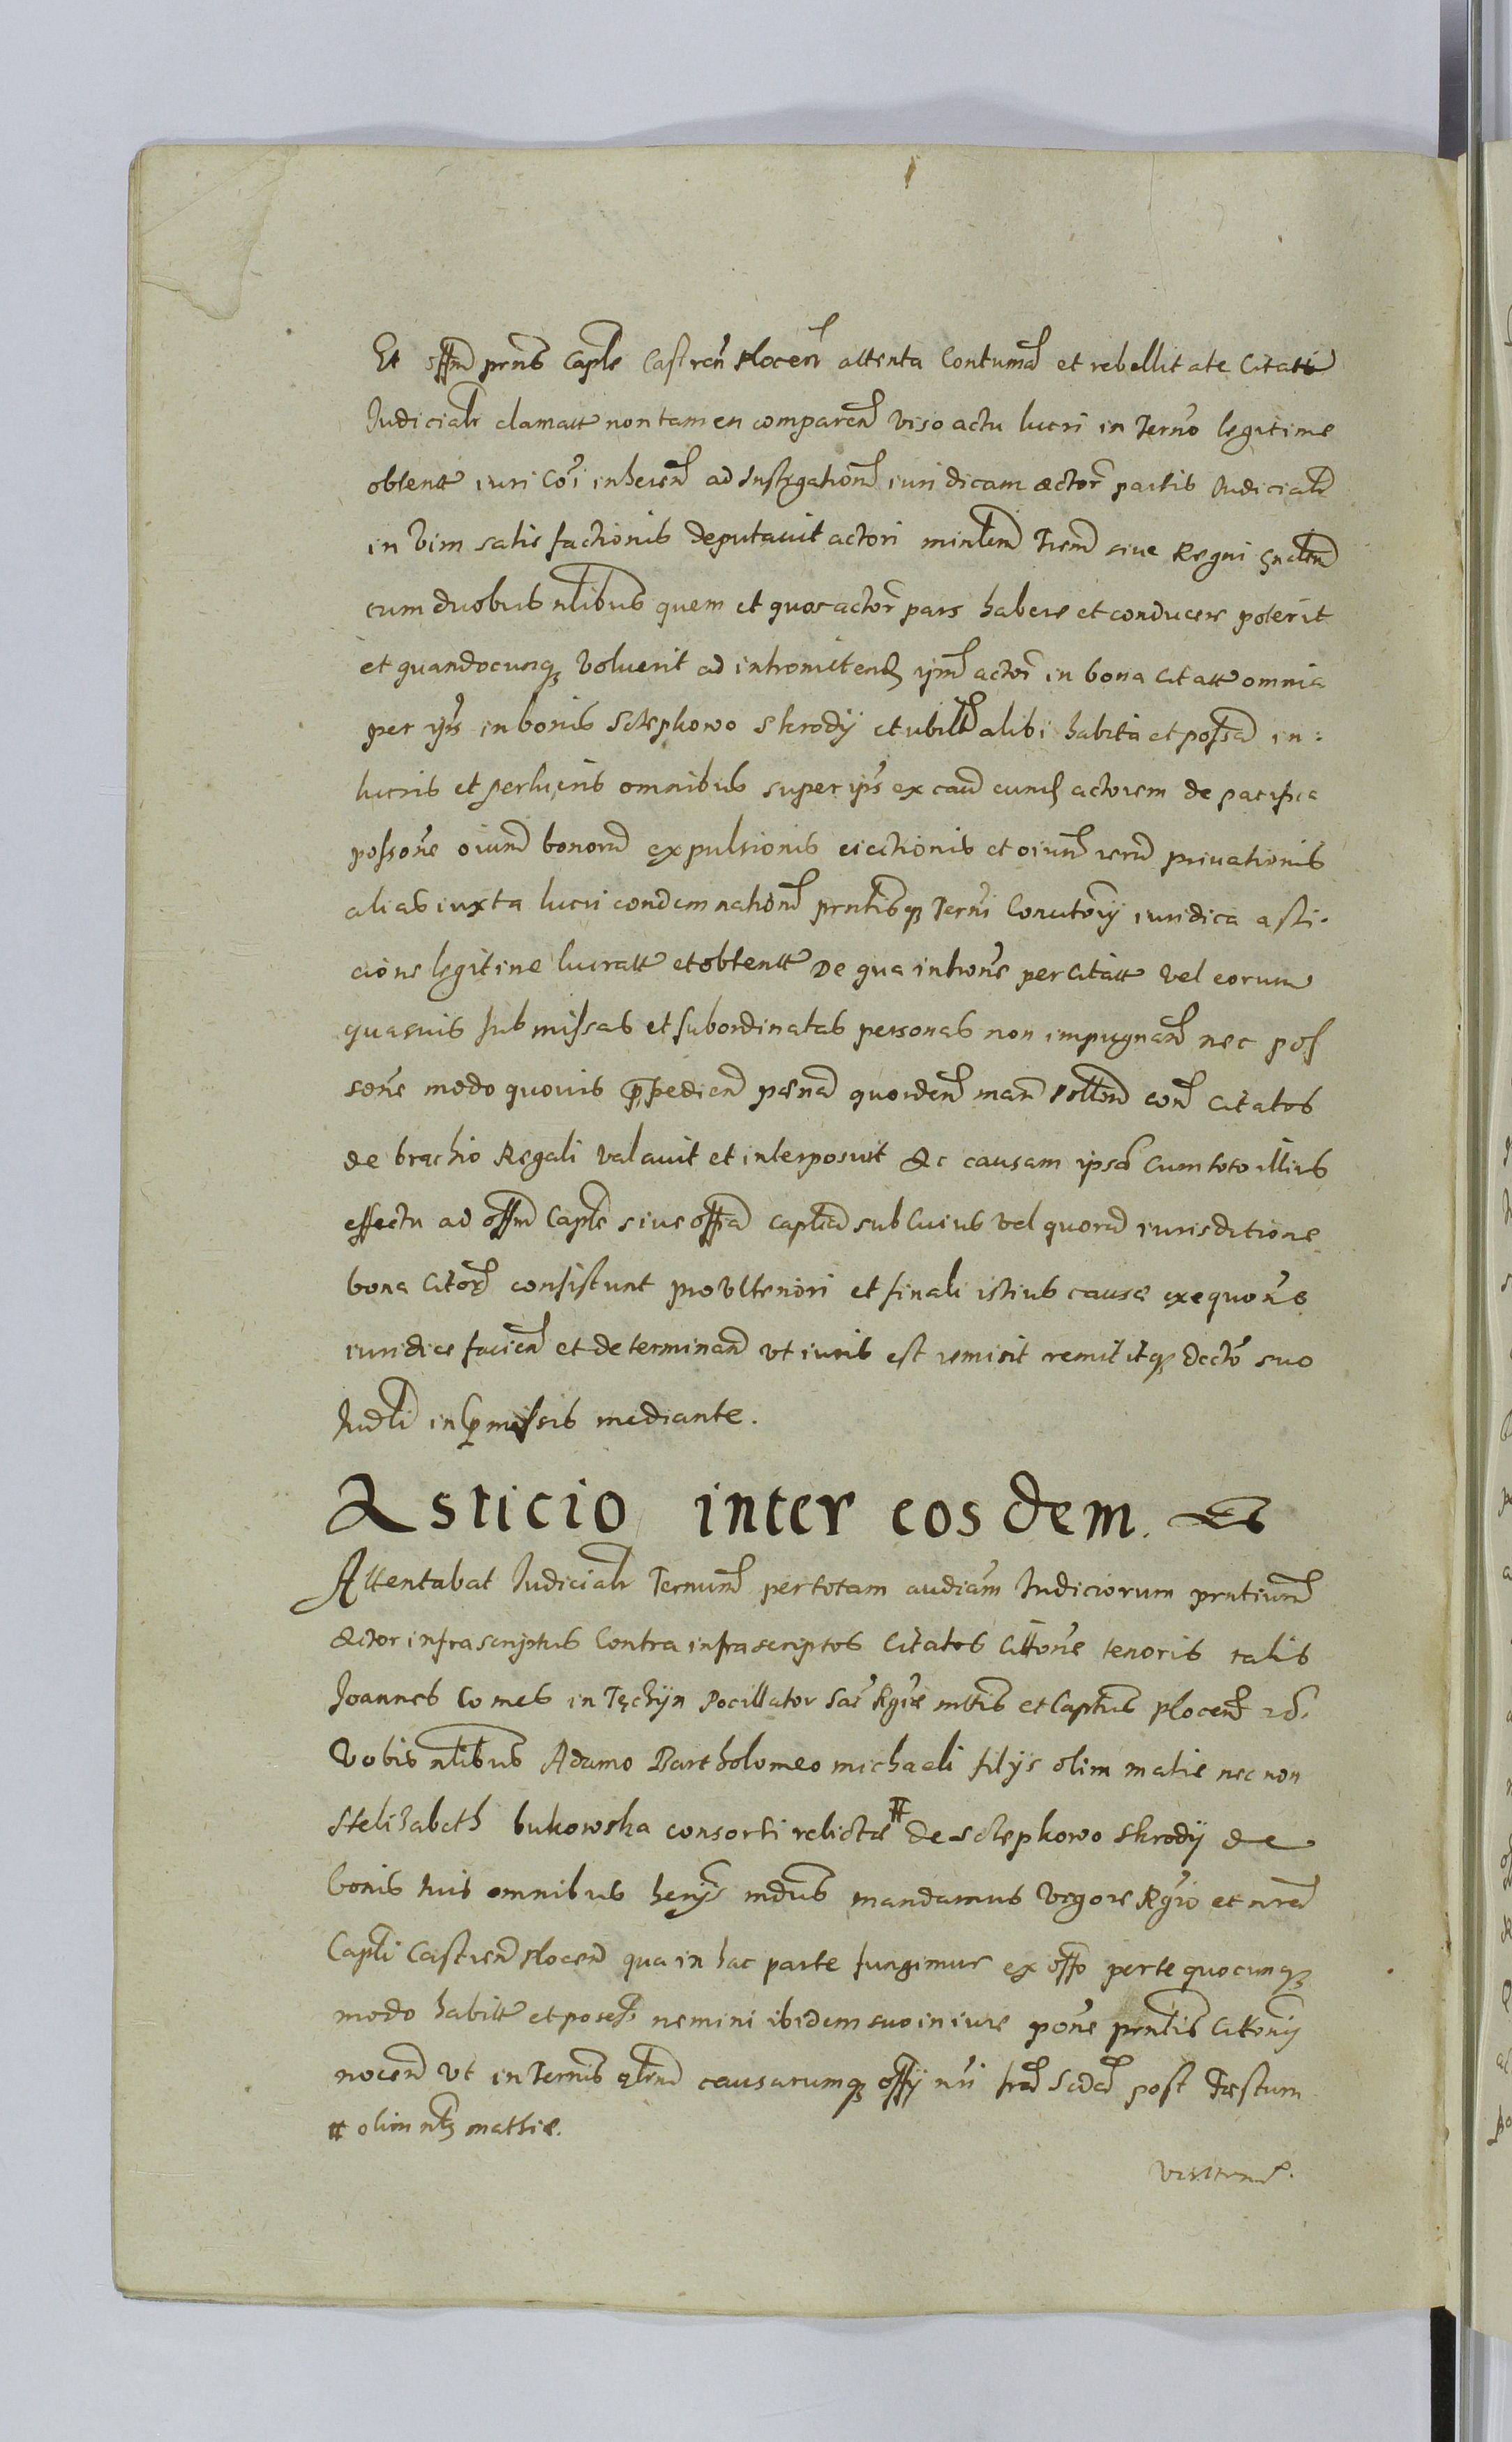 Et offm prns Caple Castren Plocen attenta Contuma et rebellitate Citati
Judicialr clamatt non tamen comparen viso actu lucri in Terno legitime
obtentt iuri Coi inheren ad Instigationem iuridicam actor partis Judicialr
in vim satis factionis deputavit actori minlem Trem sive Regni gnalem
cum duobus nlibus quem et quos actor pars habere et conducere poterit
et quandocunq voluerit ad intromitend ipm actor in bona Citatt omnia
per ips in bonis Sclepkowo Skrody et ubilt alibi habita et possa in:
lucris et perlucris omnibus super ips ex causa eund actorem de pacifica
possone oium bonorum expulsionis eiectionis et oium rerum privationis
alias iuxta lucri condemnationem prntisq Terni Conutorij iuridica asti.
cione legitime lucratt et obtentt De qua introne per Citatt vel eorum
quasvis submissas et subordinatas personas non impugnand nec pos
sone modo quovis prepediend paena quordem mar pollon con Citatos
de brachio Regali valavit et interposuit Ac causam ipsa Cum toto illius
effectu ad offm Caple sive offia captlia sub Cuius vel quorum iurisditione
bona Citor consistunt pro ulteriori et finali istius causae exequone
iuridice facien et determinand ut iuris est remisit remittitq Decto suo
Judli in pmissis mediante.
Asticio inter eosdem.
Attentabat Judicialr Ternum per totam audiam Judiciorum prntium
Actor infrascriptus Contra infrascriptos Citatos Cittone tenoris talis
Joannes Comes in Tęchyn Pocillator Sae Rgiae mttis et Captus Plocen
Vobis nlibus Adamo Bartholomeo Michaeli filijs olim matie nec non
Helizabeth bukowska consorti relictae # de Sclepkowo Skrody de
bonis suis omnibus mandamus Vigore Rgio et nra
Capli Castren Plocen qua in hac parte fungimur ex offo per te quocunq
modo habitt et possess nemini ibidem suo in iure pone prntis Cittonis
nocen ut in Ternis causarumq offij nri post Festum
# olim nlis mathiae.